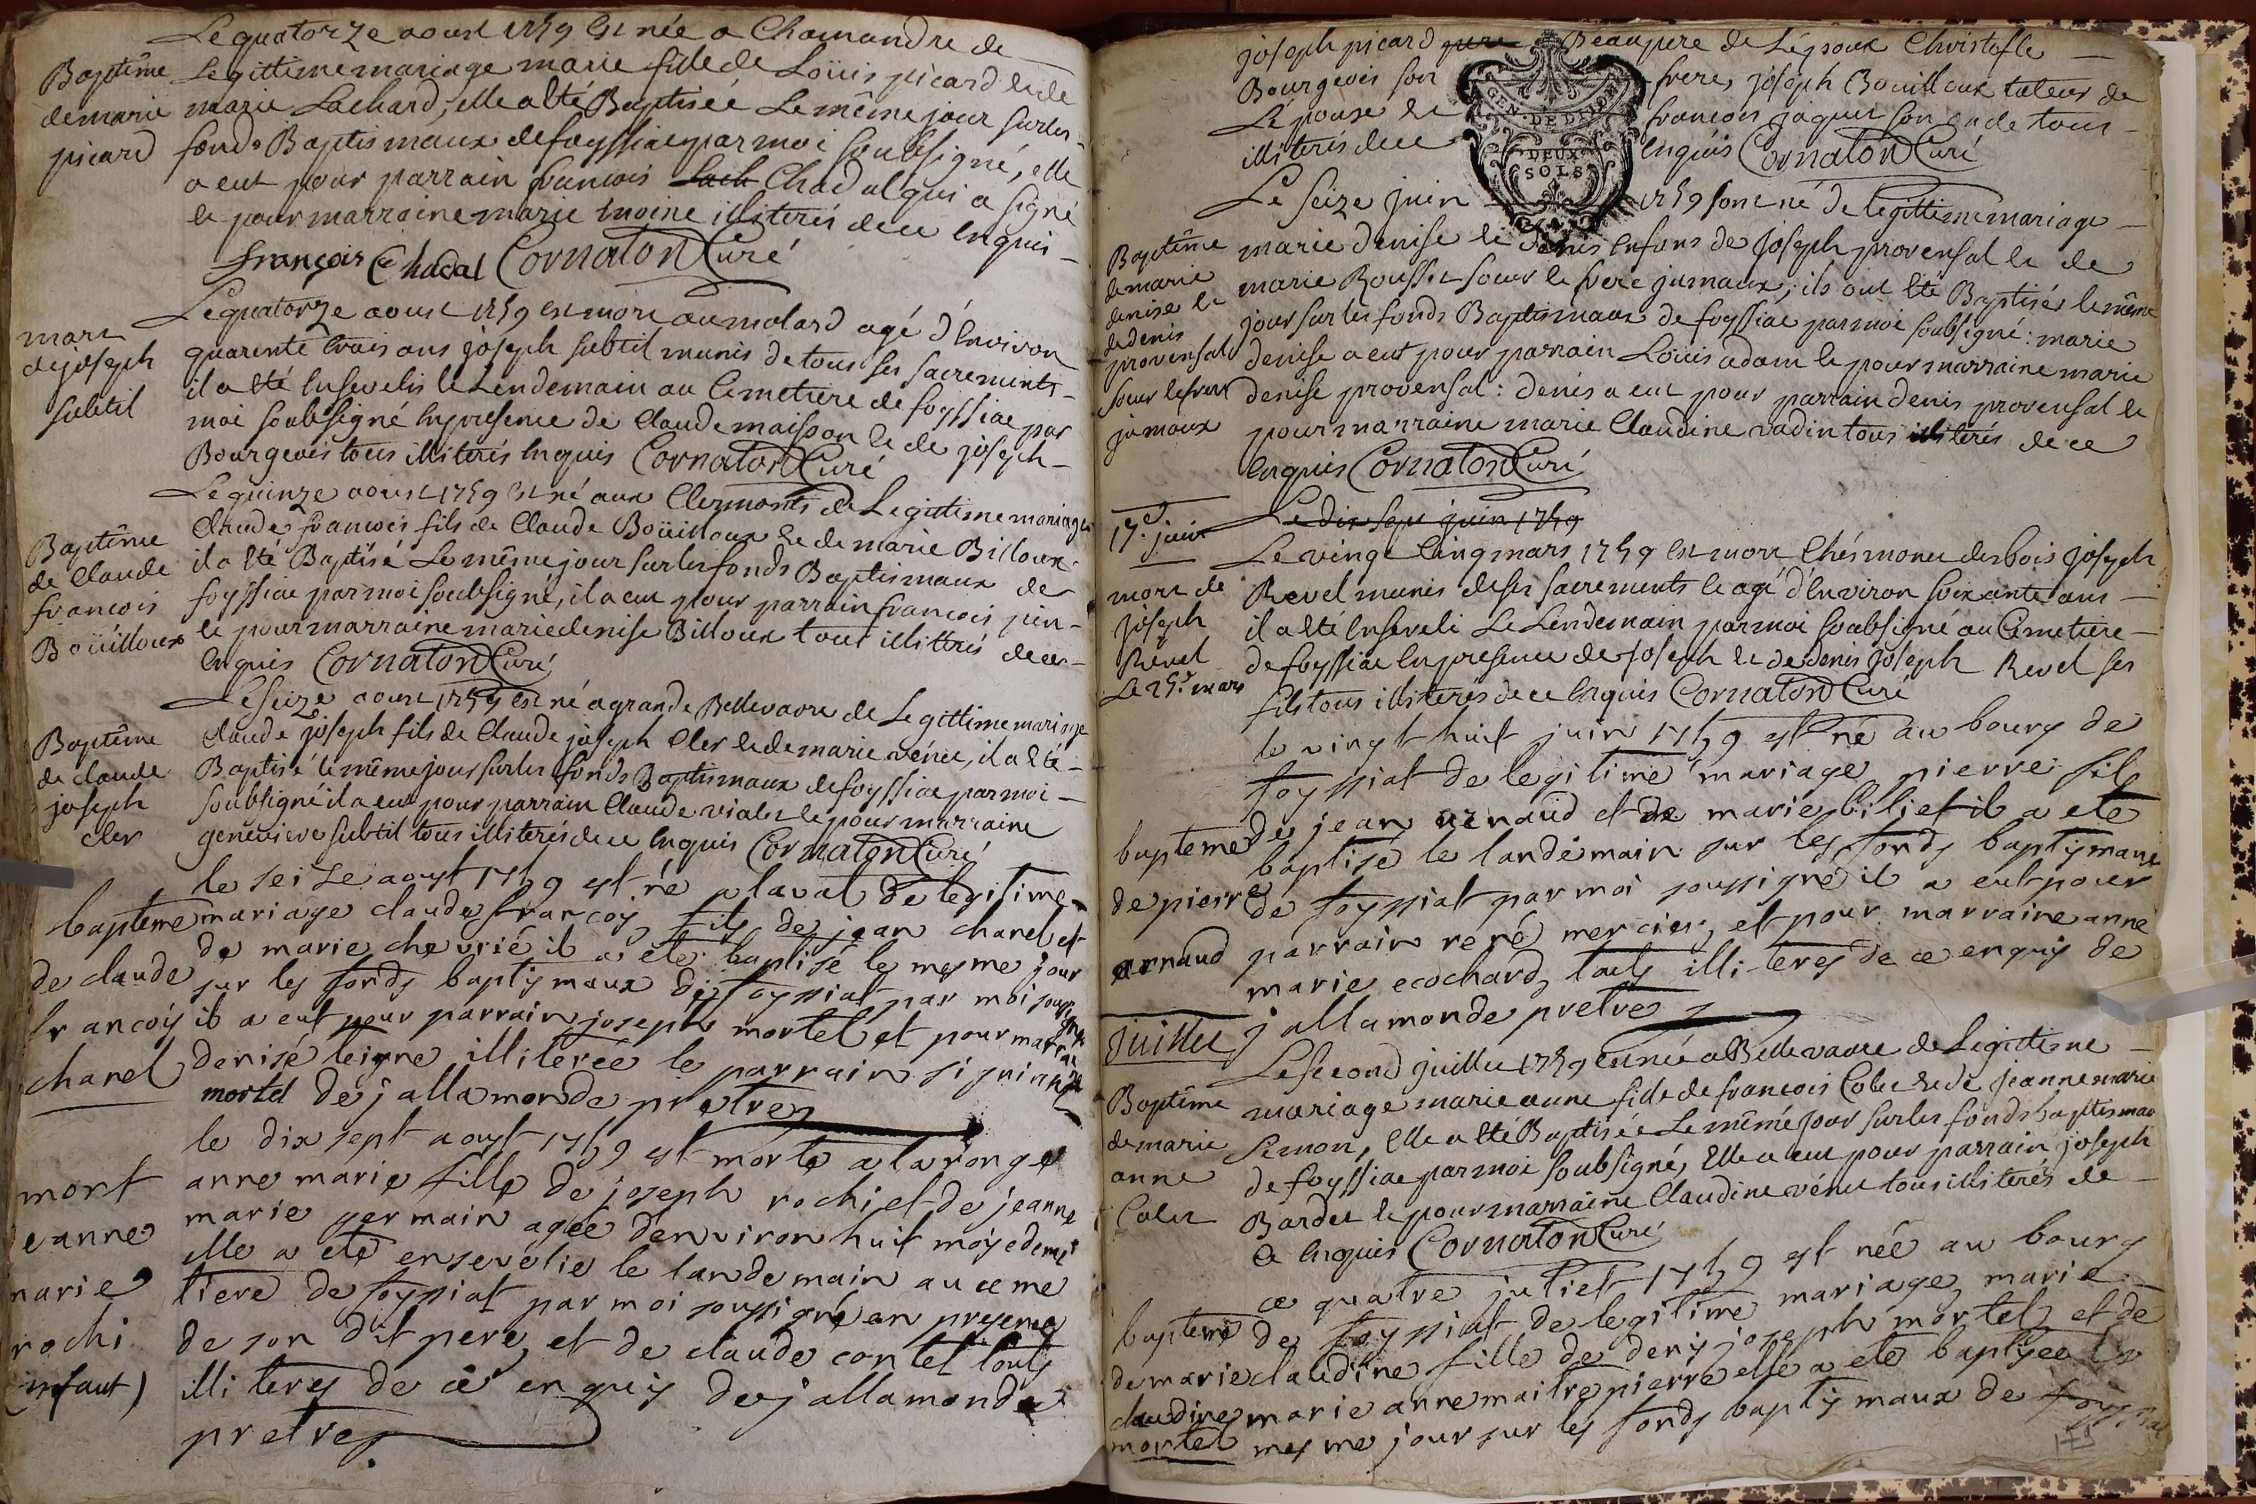 Le quatorze aoust 1759 est née a Chamandre de
Baptême
de marie
picard
Legittime mariage marie fille de Loüis picard et de
marie Lachard, elle a été Baptisée Le même jour sur les
fonds Baptismaux de foyssiac par moi soubsigné, elle
a eut pour parrain francois Chadal qui a signé
et pour marraine marie moine illiterés de ce enquis
françois Chadal Cornaton Curé
Le quatorze aoust 1759 est mort au molard agé d'Environ
mort
de joseph
subtil
quarente trois ans joseph subtil munis de tous ses sacrements
il a été Ensevelis le Lendemain au Cimetiere de foyssiac par
moi soubsigné en presence de Claude maisson et de joseph
Bourgeois tous illiterés enquis Cornaton Curé
Le quinze aoust 1759 est né aux Clermonts de Legittime mariage
Baptême
de Claude
francois
Boüilloux
Claude francois fils de Claude Boüilloux et de marie Billoux
il a été Baptisé Le même jour sur les fonds Baptismaux de
foyssiac par moi soubsigné, il a eut pour parrain francois
et pour marraine marie denise Billoux tous illiterés de ce
enquis Cornaton Curé
Le seize aoust 1759 est né a grande Bellevavre de Legittime mariage
Baptême
de claude
joseph
cler
Claude joseph fils de Claude joseph Cler et de marie vénue, il a été
Baptisé le même jour sur les fonds Baptismaux de foyssiac par moi
soubsigné il a eut pour parrain Claude vialet et pour marraine
genevieve subtil tous illiterés de ce enquis Cornaton Curé
le seize aoust 1759 est né a laval de legitime
bapteme
de claude
francoiy
chanel
mariage claude francoiy fily de jean chanel et
de marie chevrié il a eté baptisé le mesme jour
sur ley fondy baptiymaux de foyssiat par moi soussigné
il a eut pour parrain joseph mortel et pour marraine
denise teigne illiterée le parrain signin
mortel Dejallamonde pretre
le dix sept aoust 1759 est morte a la ronge
mort
anne
marie
rochi
(enfant)
anne marie fille de joseph rochi et de jeanne
marie germain agée denviron huit moiy e demi
elle a eté ensevelie le landemain au ceme
tiere de foyssiat par moi soussigné en presence
de son dit pere, et de claude cortel touty
illiterey de ce enquiy dejallamonde
pretre
joseph picard Beaupere de L'épouse Christofle
Bourgeois son frere, joseph Boüilloux tuteur de
L'épouse et francois jaquet son oncle tous
illiterés de ce enquis Cornaton Curé
GEN · DE DIJON
DEUX
SOLS
Le seize juin 1759 sont né de legittime mariage
Baptême
de marie
denise et
de denis
provensal
soeur et frere
jumaux
marie denise et denis Enfans de joseph provensal et de
marie Rousset soeur et frere jumaux; ils ont été Baptisés le même
jour sur les fonds Baptismaux de foyssiac par moi soubsigné: marie
denise a eut pour parrain Loüis adam et pour marraine marie
denise provensal: denis a eut pour parrain denis provensal et
pour marraine marie Claudine vadin tous illiterés de ce
enquis Cornaton Curé
17e juin
Le dix sept juin 1759
Le vingt Cinq mars 1759 est mort Chés monet des bois joseph
mort de
joseph
Revel
Le 25e mars
Revel munis de ses sacrements et agé d'Environ soixante ans
il a été Enseveli Le Lendemain par moi soubsigné au Cimetiere
de foyssiac en presence de joseph et de denis joseph Revel ses
fils tous illiterés de ce enquis Cornaton Curé
le vingt huit juin 1759 est né au bourg de
foyssiat de legitime mariage pierre fily
bapteme
de pierre
arnaud
de jean arnaud et de marie biliet il a eté
baptisé le landemain sur ley fondy baptiymaux
de foyssiat par moi soussigné il a eut pour
parrain rené mercier, et pour marraine anne
marie ecochard, touty illiterey de ce enquiy de
jallamonde pretre
juillet
Le second juillet 1759 est née a Bellevavre de Legittime
Baptême
de marie
anne
Colet
mariage marie anne fille de francois Colet et de jeanne marie
Semon, elle a été Baptisée Le même jour sur les fonds baptismaux
de foyssiac par moi soubsigné, elle a eut pour parrain joseph
Bardet et pour marraine Claudine vénue tous illiterés de
ce enquis Cornaton Curé
ce quatre juliet 1759 est née au bourg
bapteme
de marie
claudine
mortel
de foyssiat de legitime mariage, marie
claudine fille de deniy joseph mortel, et de
marie anne maitrepierre elle a eté baptiysée le
mesme jour sur ley fondy baptiymaux de foyssiat
175